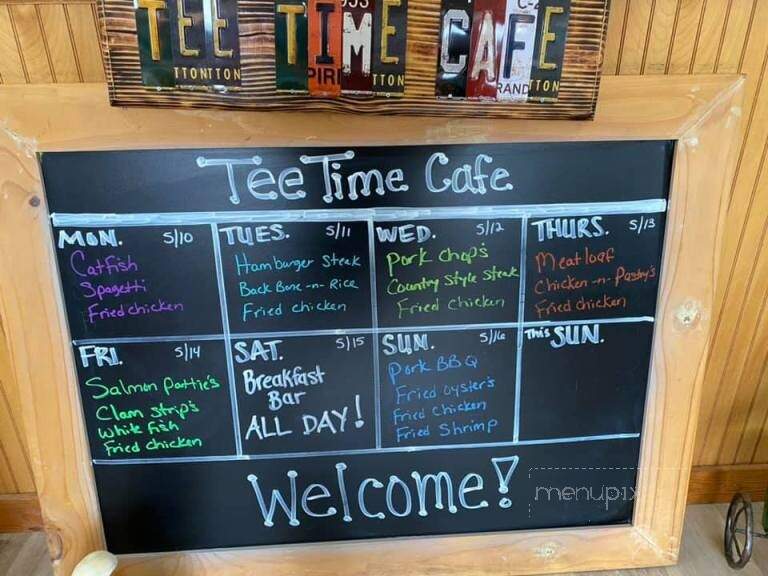 TEE TIME CAFE
TTONTTON
PIRI
TTON
RAND
TTON
Tee Time Cafe
MON. 5/10
Catfish
Spagetti
Fried chicken
TUES. 5/11
Hamburger Steak
Back Bone -n- Rice
Fried chicken
WED. 5/12
Pork chop's
Country Style Steak
Fried Chicken
THURS. 5/13
Meatloaf
Chicken -n- Pastry's
Fried chicken
FRI. 5/14
Salmon Pattie's
Clam strip's
White fish
Fried chicken
SAT. 5/15
Breakfast
Bar
ALL DAY!
SUN. 5/16
Pork BBQ
Fried oyster's
Fried Chicken
Fried Shrimp
This SUN.
Welcome!
menupix